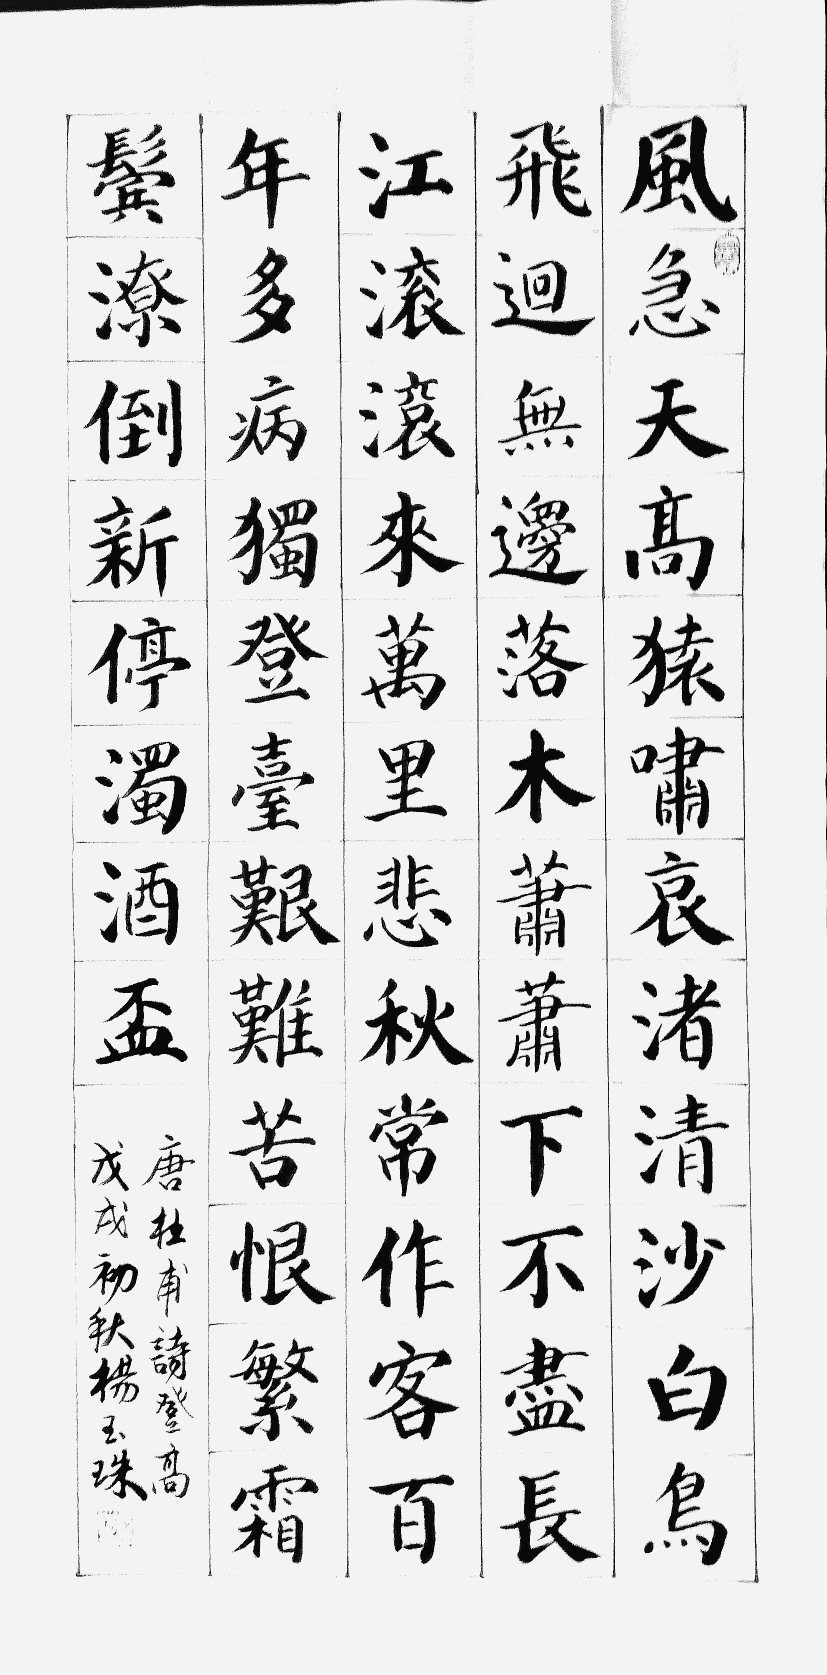 風急天髙猿嘯哀渚清沙白鳥
飛迴無邊落木蕭蕭下不盡長
江滚滾來萬里悲秋常作客百
年多病獨登臺艱難苦恨繁霜
鬂潦倒新停濁酒盃
唐杜甫詩登髙
戊戌初秋楊玉珠